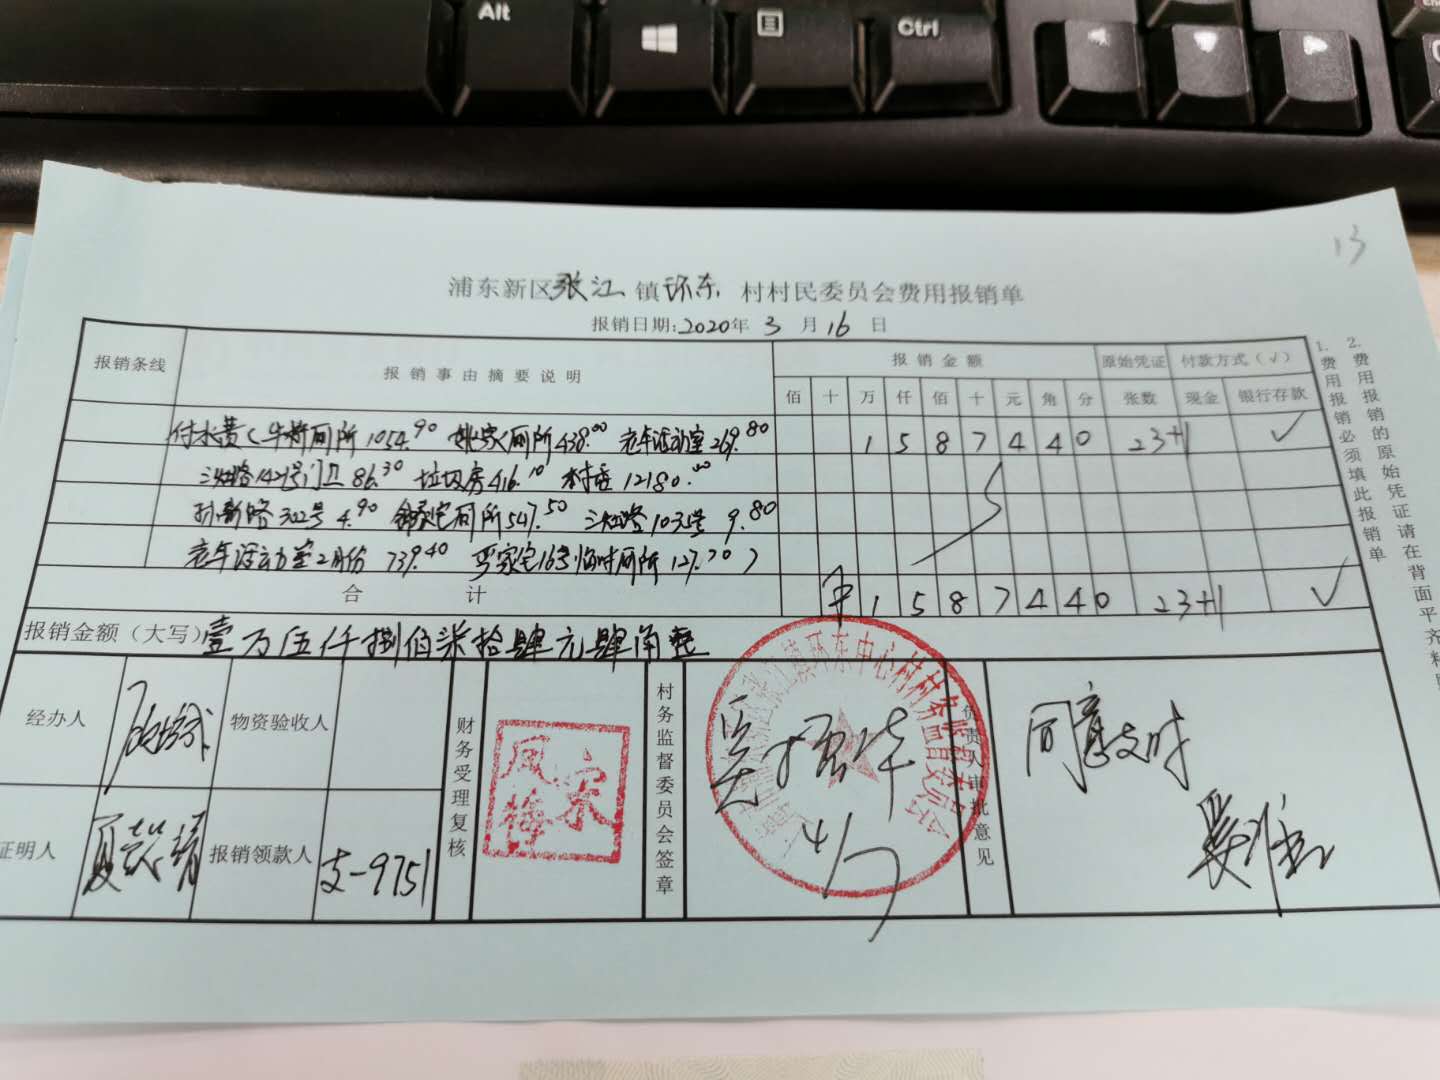 Alt
Ctrl
13
浦东新区张江镇环东村村民委员会费用报销单
报销日期:2020年3月16日
报销条线 报销事由摘要说明 报销金额 原始凭证 付款方式(√)
佰 十 万 仟 佰 十 元 角 分 张数 现金 银行存款
付水费(牛桥厕所1054.90 姚家厕所438.00 老年活动室269.80 1 5 8 7 4 4 0 23+1 √
三灶路1421号门卫86.30 垃圾房416.10 村委12180.00
孙新路302号4.90 宅厕所547.50 三灶路1035号9.80
老年活动室2月份739.40 严家宅16号临时厕所127.70)
合计 ¥ 1 5 8 7 4 4 0 23+1 √
报销金额(大写)壹万伍仟捌佰柒拾肆元肆角整
经办人 物资验收人
证明人 报销领款人 支-9751
财务受理复核
宋凤梅
村务监督委员会签章
张江镇环东中心村村务监督委员会
4/7
负责人审批意见
同意支付
1.费用报销必须填此报销单
2.费用报销的原始凭证请在背面平齐粘